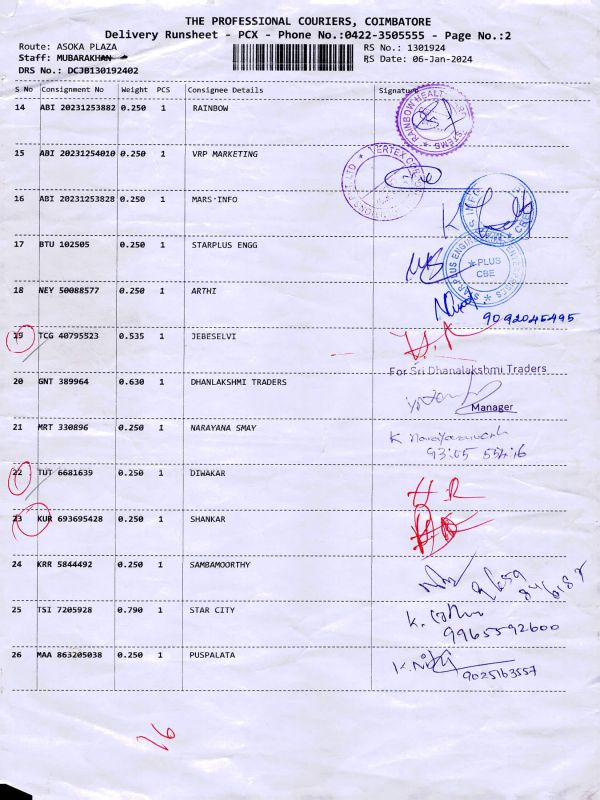 THE PROFESSIONAL COURIERS, COIMBATORE
Delivery Runsheet - PCX - Phone No.:0422-3505555 - Page No.:2
Route: ASOKA PLAZA RS No.: 1301924
Staff: MUBARAKHAN RS Date: 06-Jan-2024
DRS No.: DCJB130192402
S No Consignment No Weight PCS Consignee Details Signature
14 ABI 20231253882 0.250 1 RAINBOW
15 ABI 20231254010 0.250 1 VRP MARKETING
16 ABI 20231253828 0.250 1 MARS INFO
17 BTU 102505 0.250 1 STARPLUS ENGG
PLUS
CBE
18 NEY 50088577 0.250 1 ARTHI
9092045495
19 TCG 40795523 0.535 1 JEBESELVI
For Sri Dhanalakshmi Traders
20 GNT 389964 0.630 1 DHANLAKSHMI TRADERS
Manager
21 MRT 330896 0.250 1 NARAYANA SMAY
22 TUT 6681639 0.250 1 DIWAKAR
H R
23 KUR 693695428 0.250 1 SHANKAR
24 KRR 5844492 0.250 1 SAMBAMOORTHY
25 TSI 7205928 0.790 1 STAR CITY
9965592600
26 MAA 863205038 0.250 1 PUSPALATA
9025163557
16